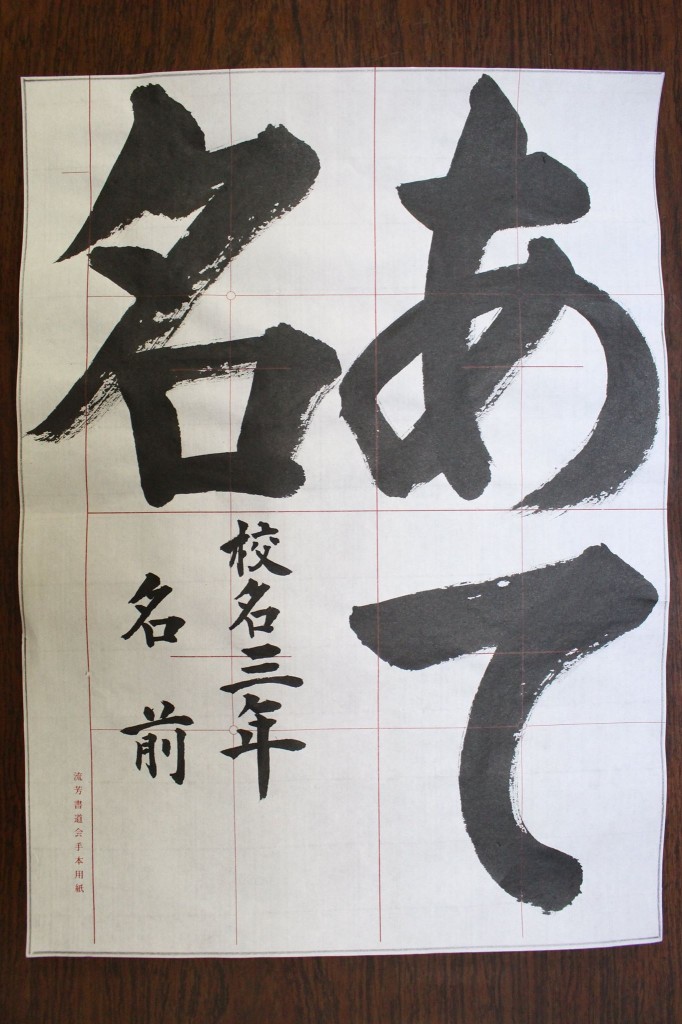 あて
名
校名三年
名前
流芳書道会手本用紙